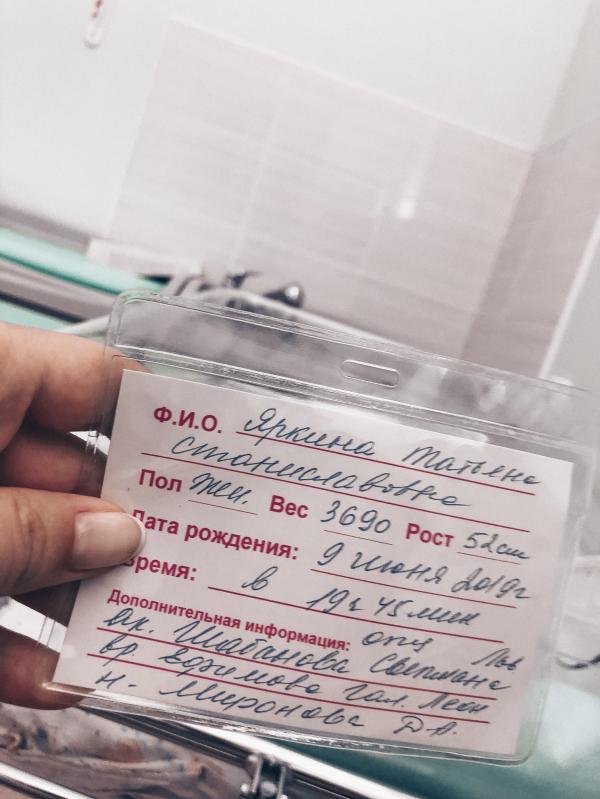 Ф.И.О. Яркина Татьяна
Станиславовна
Пол жен. Вес 3690 Рост 52см
Дата рождения: 9 июня 2019г
Время: в 19ч 45мин
Дополнительная информация:
ак. Шабанова Светлана
вр. Ефимова Гал. Леон
н. Миронова Д.А.